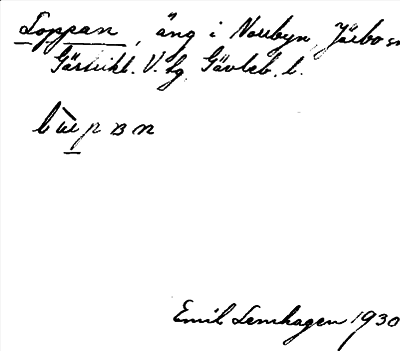 Loppan, äng i Norrbyn, Järbo sn
Gästrikl. V. tg, Gävleb. l.
Emil Lemhagen 1930